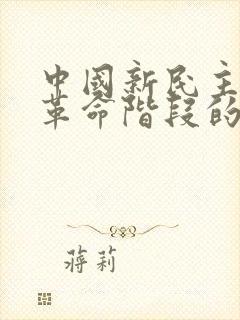 中國新民主
革命階段的
蔣莉